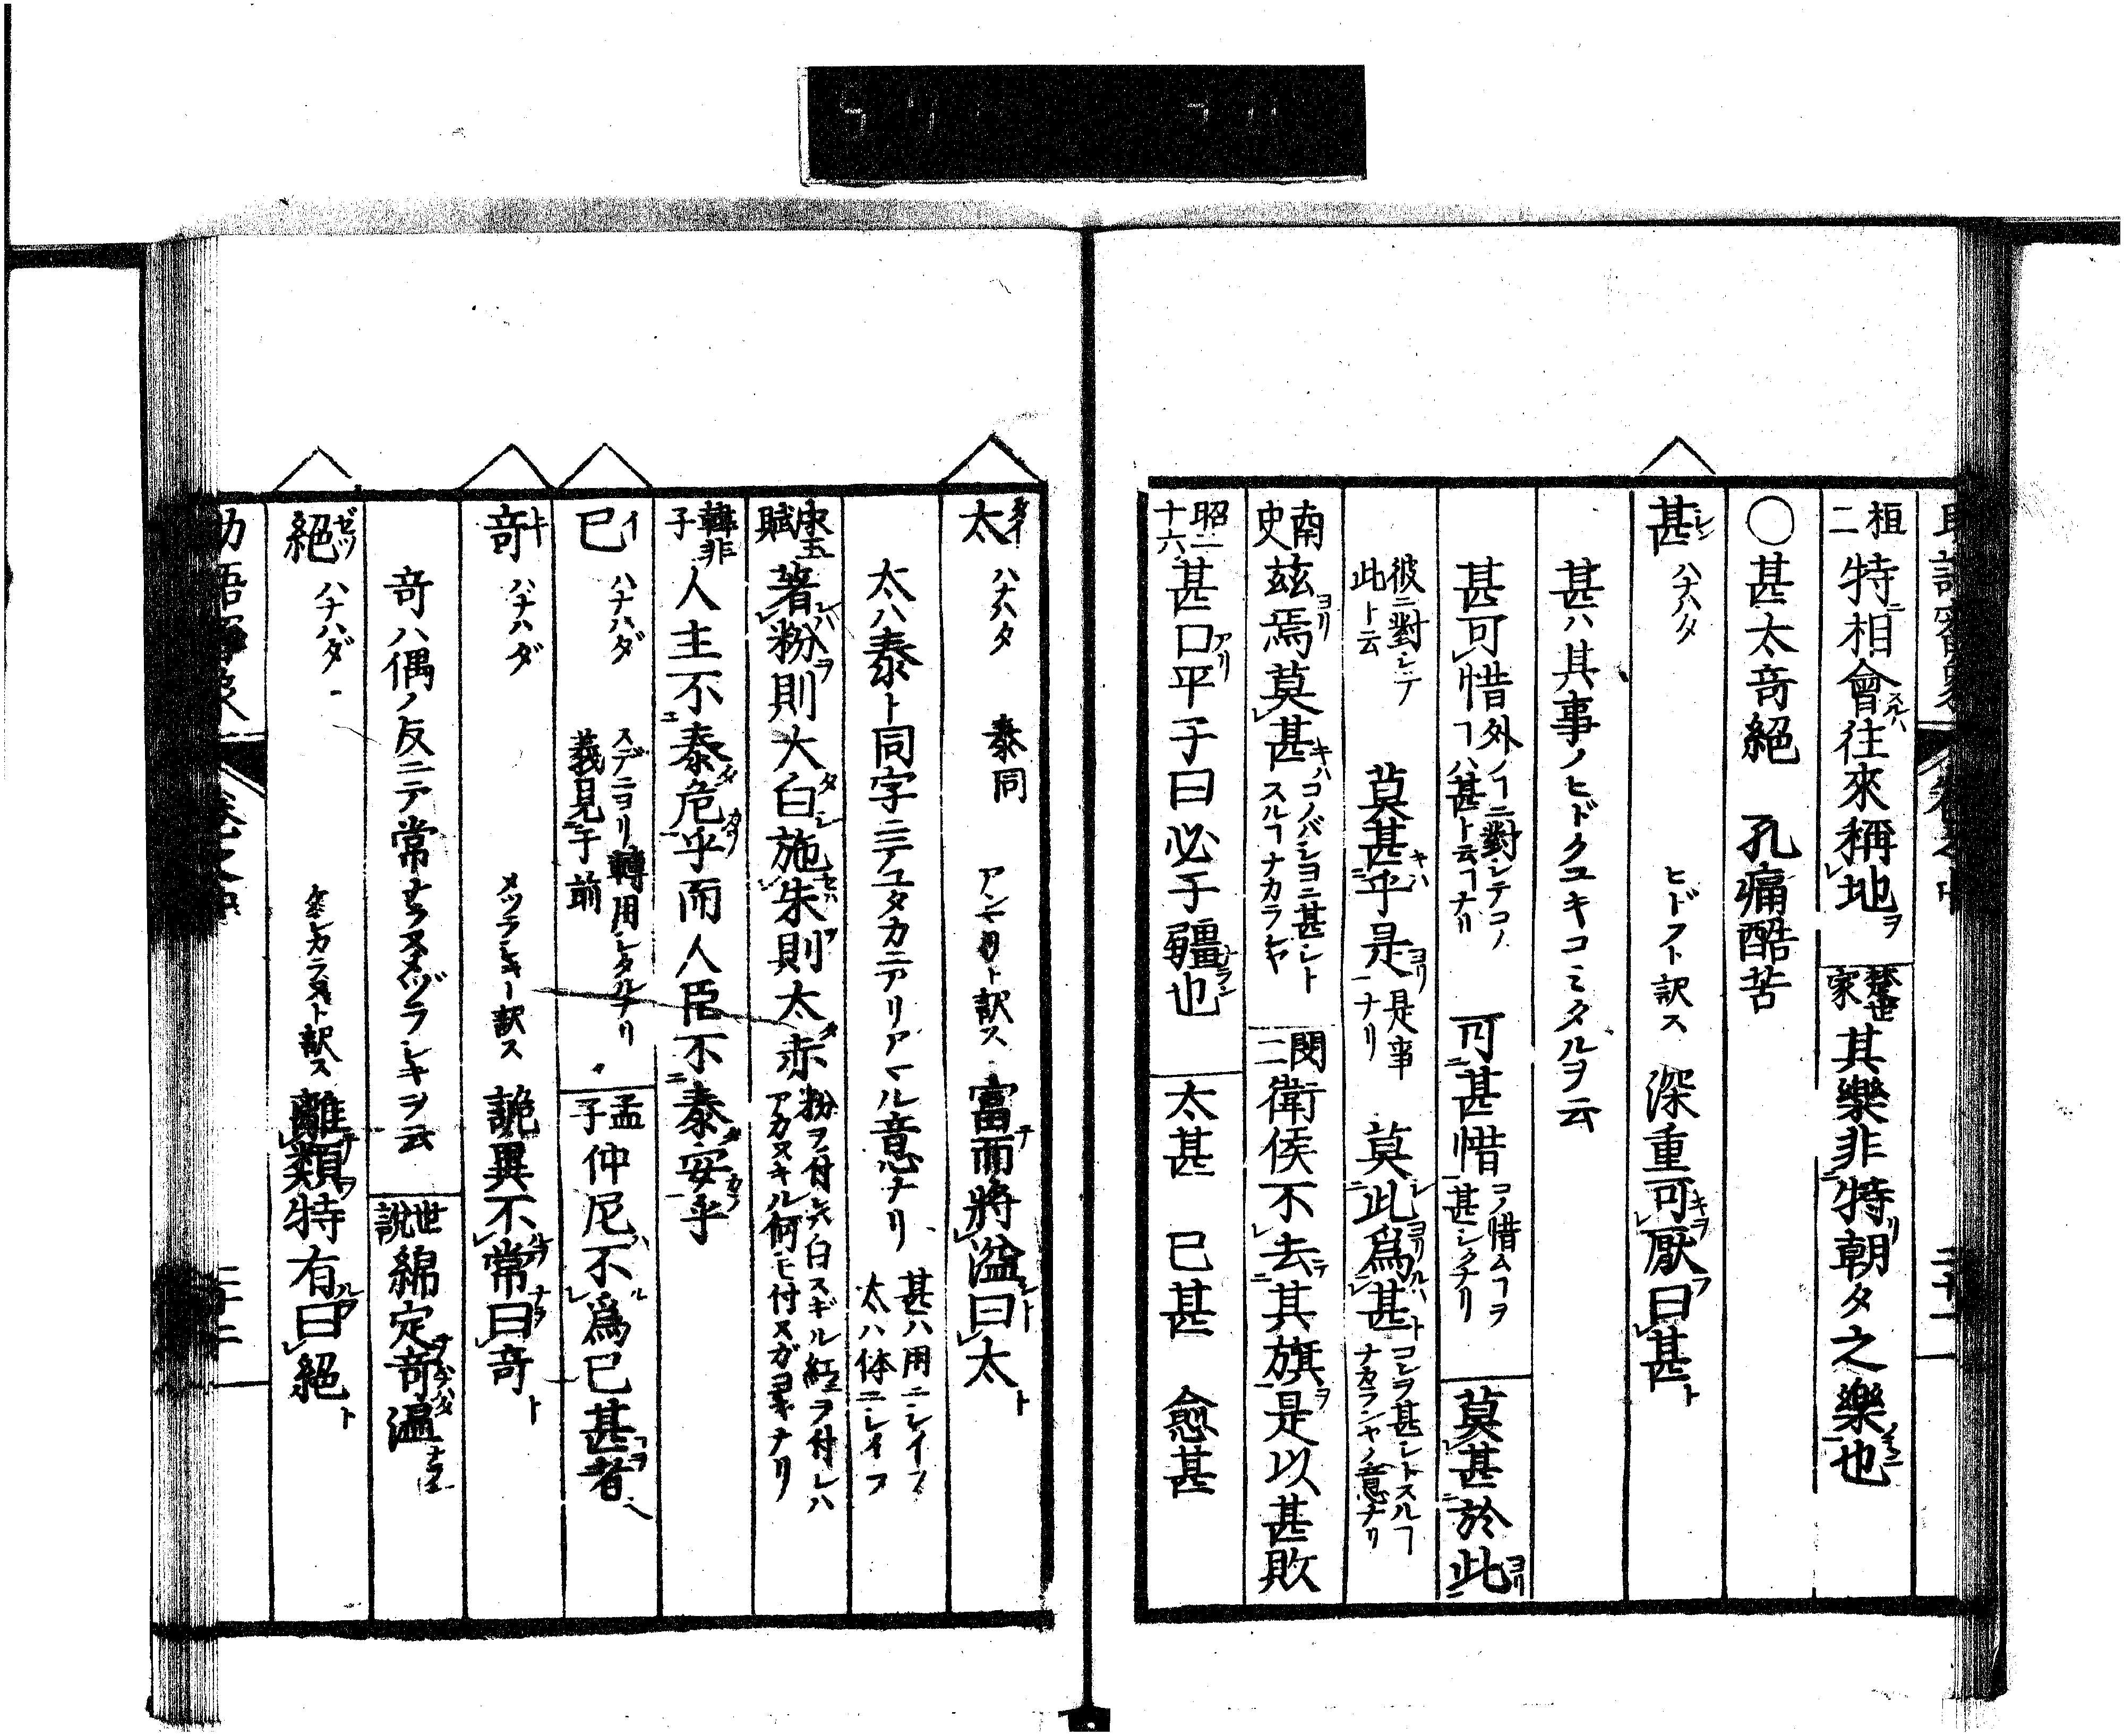 桓二 特相會往來稱地 楚世家 其樂非特朝夕之樂也
〇甚太奇絕 孔痛酷苦
甚 ハナハタ ヒドフト訳ス 深重可厭曰甚
甚ハ其事ノヒドクユキコミタルヲ云
甚可惜 外ノヿニ對シテコノ惜ヿハ甚ト云ヿナリ 可甚惜 コノ惜ムヿヲ甚シクナリ 莫甚於此
彼ニ對シテ此ト云 莫甚乎是 是事ナリ 莫此爲甚 コレヲ甚シトスルヿナカランヤノ意ナリ
南史 茲焉莫甚 コノバシヨニ甚シトスルヿナカラン 閔二 衛侯不去其旗是以甚敗
昭二十六 甚口平子曰必子彊也 太甚 已甚 愈甚
太 ハナハタ 泰同 アンマリト訳ス 富而將溢曰太
太ハ泰ト同字ニテユタカニアリアマル意ナリ 甚ハ用ニシイフ 太ハ体ニシイフ
宋玉賦 著粉則大白施朱則太赤 粉ヲ付レハ白スギル紅ヲ付レハアカスキル何ニモ付ヌガヨキナリ
韓非子 人主不泰危乎而人臣不泰安乎
已 ハナハダ スデニヨリ轉用シタルナリ 義見于前 孟子 仲尼不爲已甚者
奇 ハナハダ メツラシキー訳ス 詭異不常曰奇
奇ハ偶ノ反ニテ常ナラヌメヅラシキヲ云 世說 綿定奇溫
絕 ハナハダ ケシカラヌト訳ス 離類特有曰絕
二十二